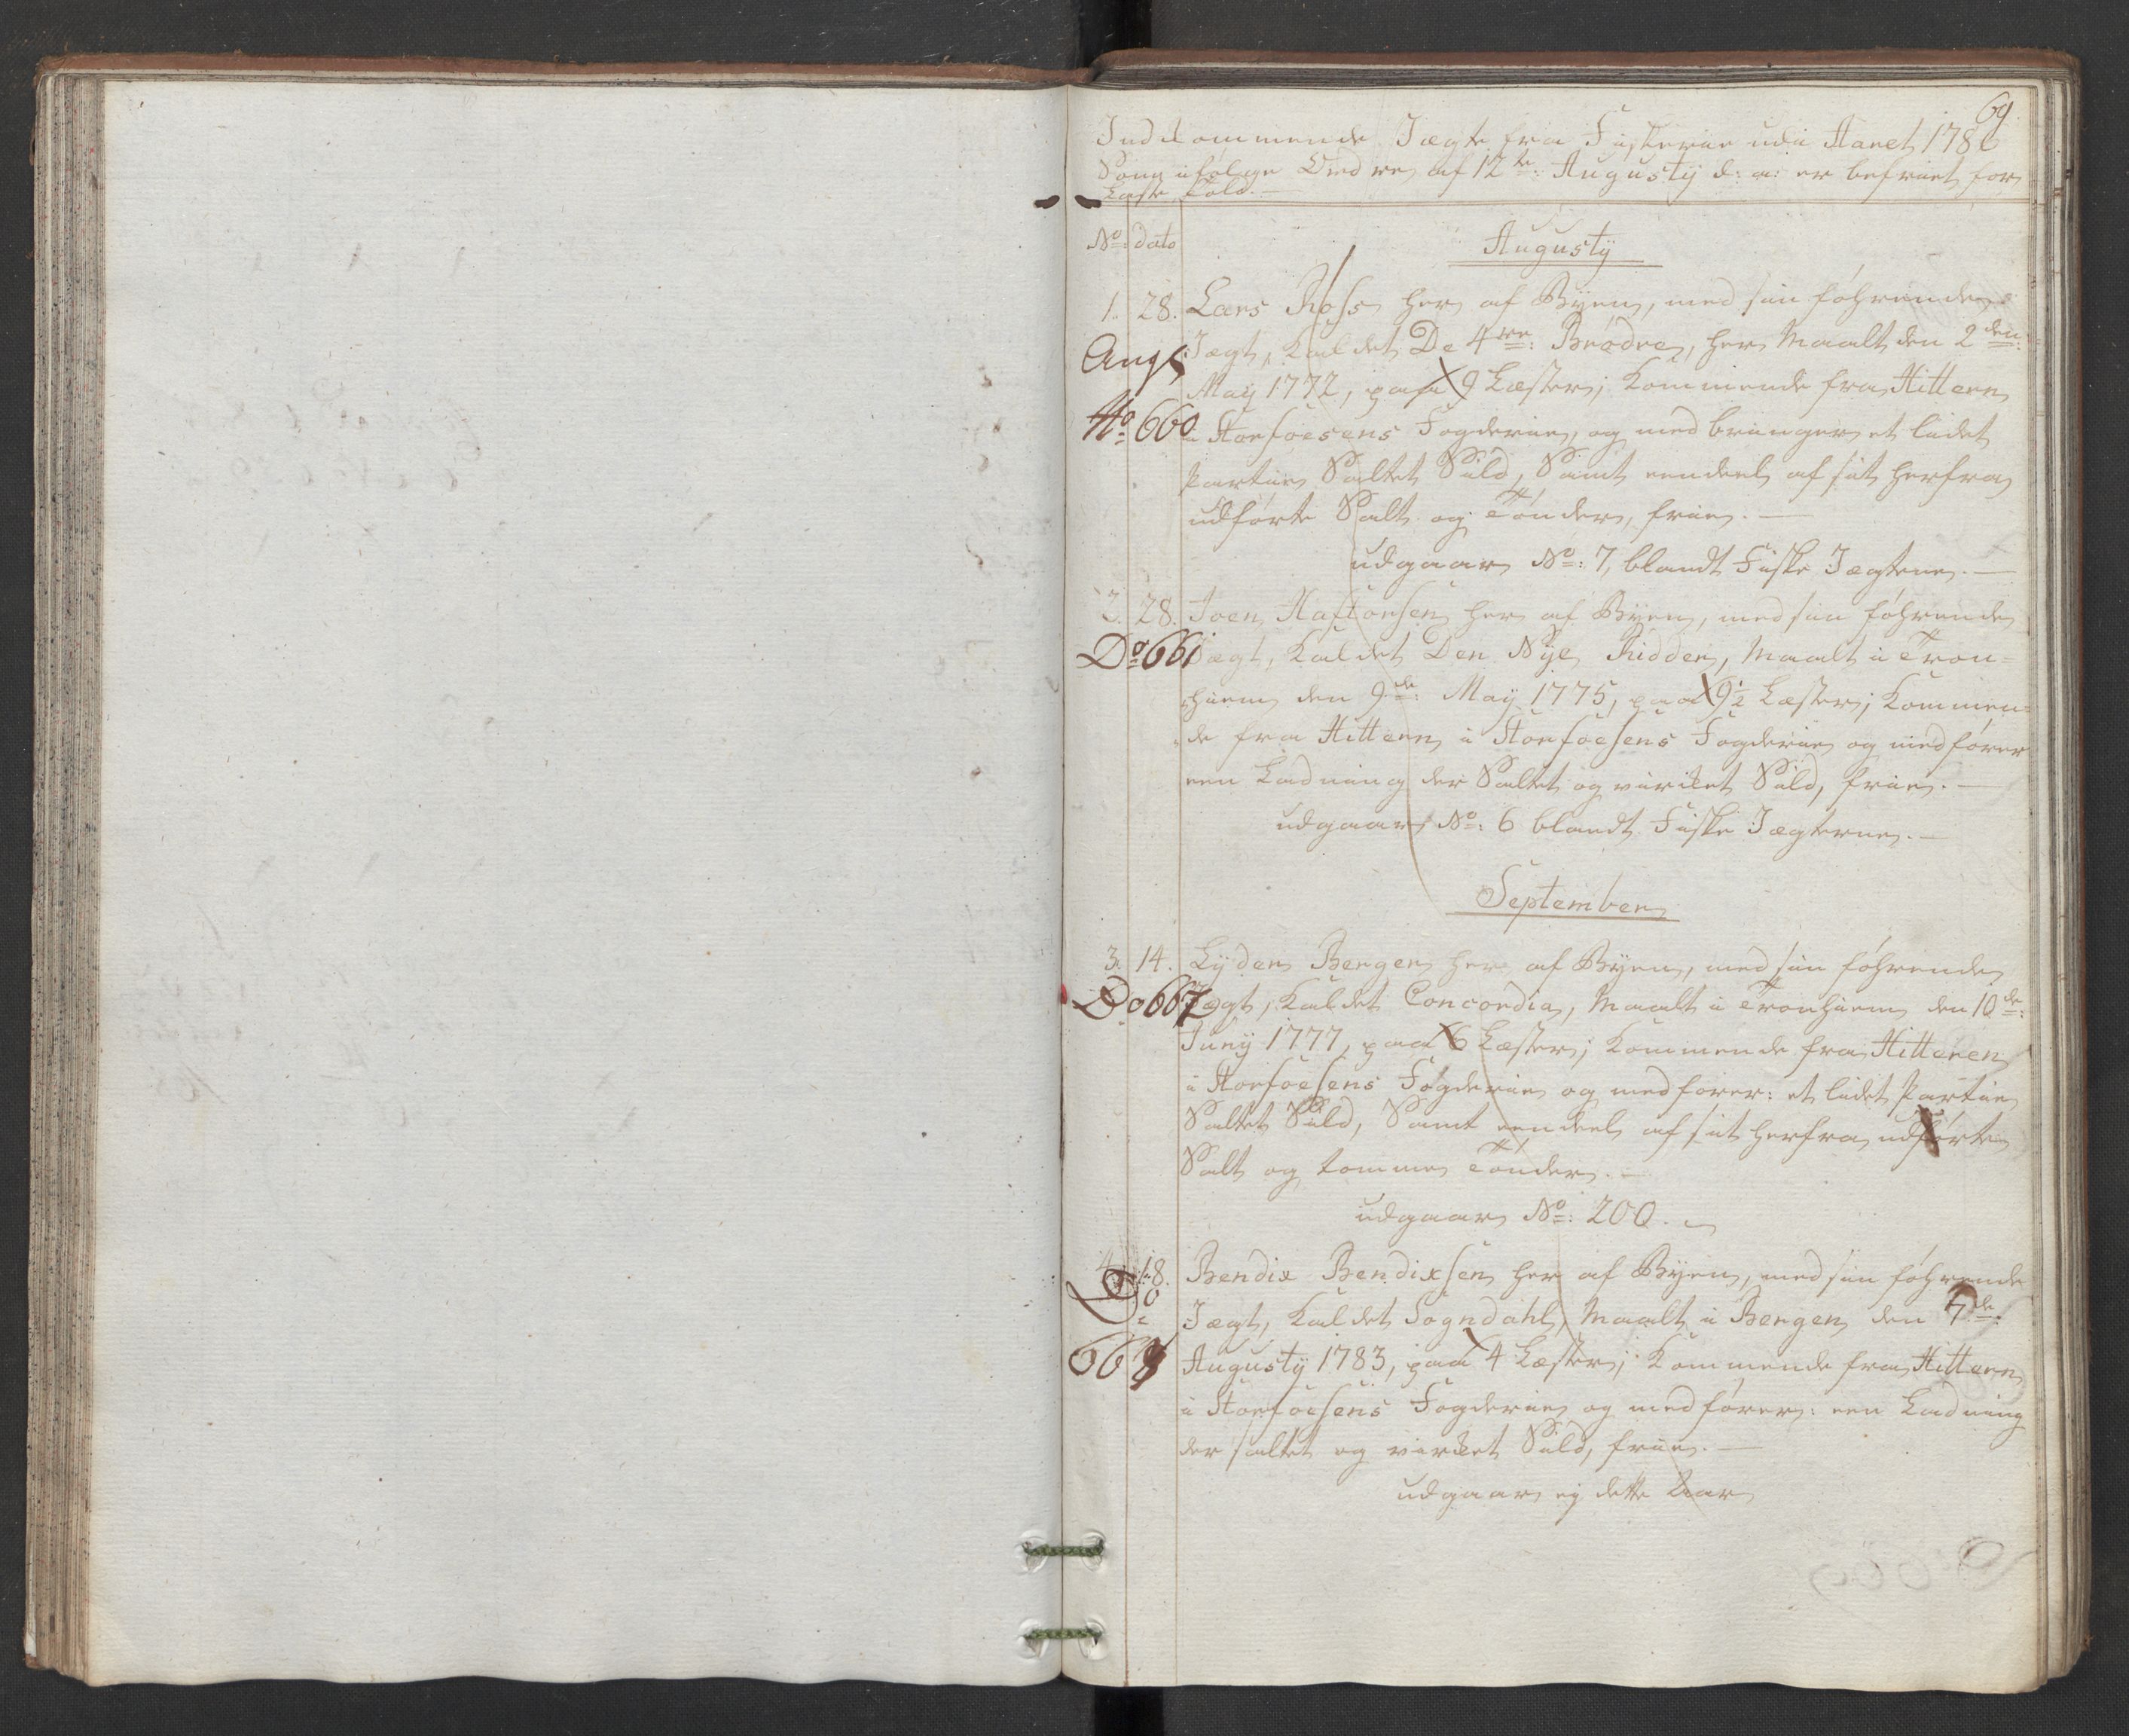 69.
Indkommende Jægte fra Fiskerie udi Aaret 1786
Som ifølge Ordre af 12te: Augusty d: a: er befriet for
Læste Told.
No: dato
Augusty
1. 28. Lars Ross her af Byen, med sin føhrende
Ang: Jægt, kaldet De 4re: Brødre, her Maalt den 2den:
May 1772, paa 9 Læster; kommende fra Hitteren
No: 660 i Storfosens Fogderie, og medbringer et lidet
Partie Saltet Sild, Samt eendeel af sit herfra
udførte Salt og Tønder, frie.
udgaar No: 7, blandt Fiske Jægterne.
2. 28. Joen Hastonsen her af Byen, med sin føhrende
Do 661 Jægt, kaldet Den Nye Ridder, Maalt i Tron=
hiem den 9de: May 1775, paa 9½ Læster; kommen=
de fra Hitteren i Storfoesens Fogderie og medfører
een Ladning der Saltet og virket Sild, frie.
udgaar No: 6 blandt Fiske Jægterne.
September
3. 14. Lyder Berger her af Byen, med sin føhrende
Do 667 Jægt, kaldet Concordia, Maalt i Tronhiem den 10de:
Juny 1777, paa 6 Læster; kommende fra Hitteren
i Storfoesens Fogderie og medfører: et lidet Partie
Saltet Sild, Samt eendeel af sit herfra udførte
Salt og tomme Tønder.
udgaar No: 200.
4. 18. Bendix Bendixsen her af Byen, med sin føhrende
Do Jægt, kaldet Sogndahl, Maalt i Bergen den 7de:
668 Augusty 1783, paa 4 Læster; kommende fra Hitteren
i Storfoesens Fogderie og medfører: een Ladning
der saltet og virket Sild, frie.
udgaar ey dette Aar